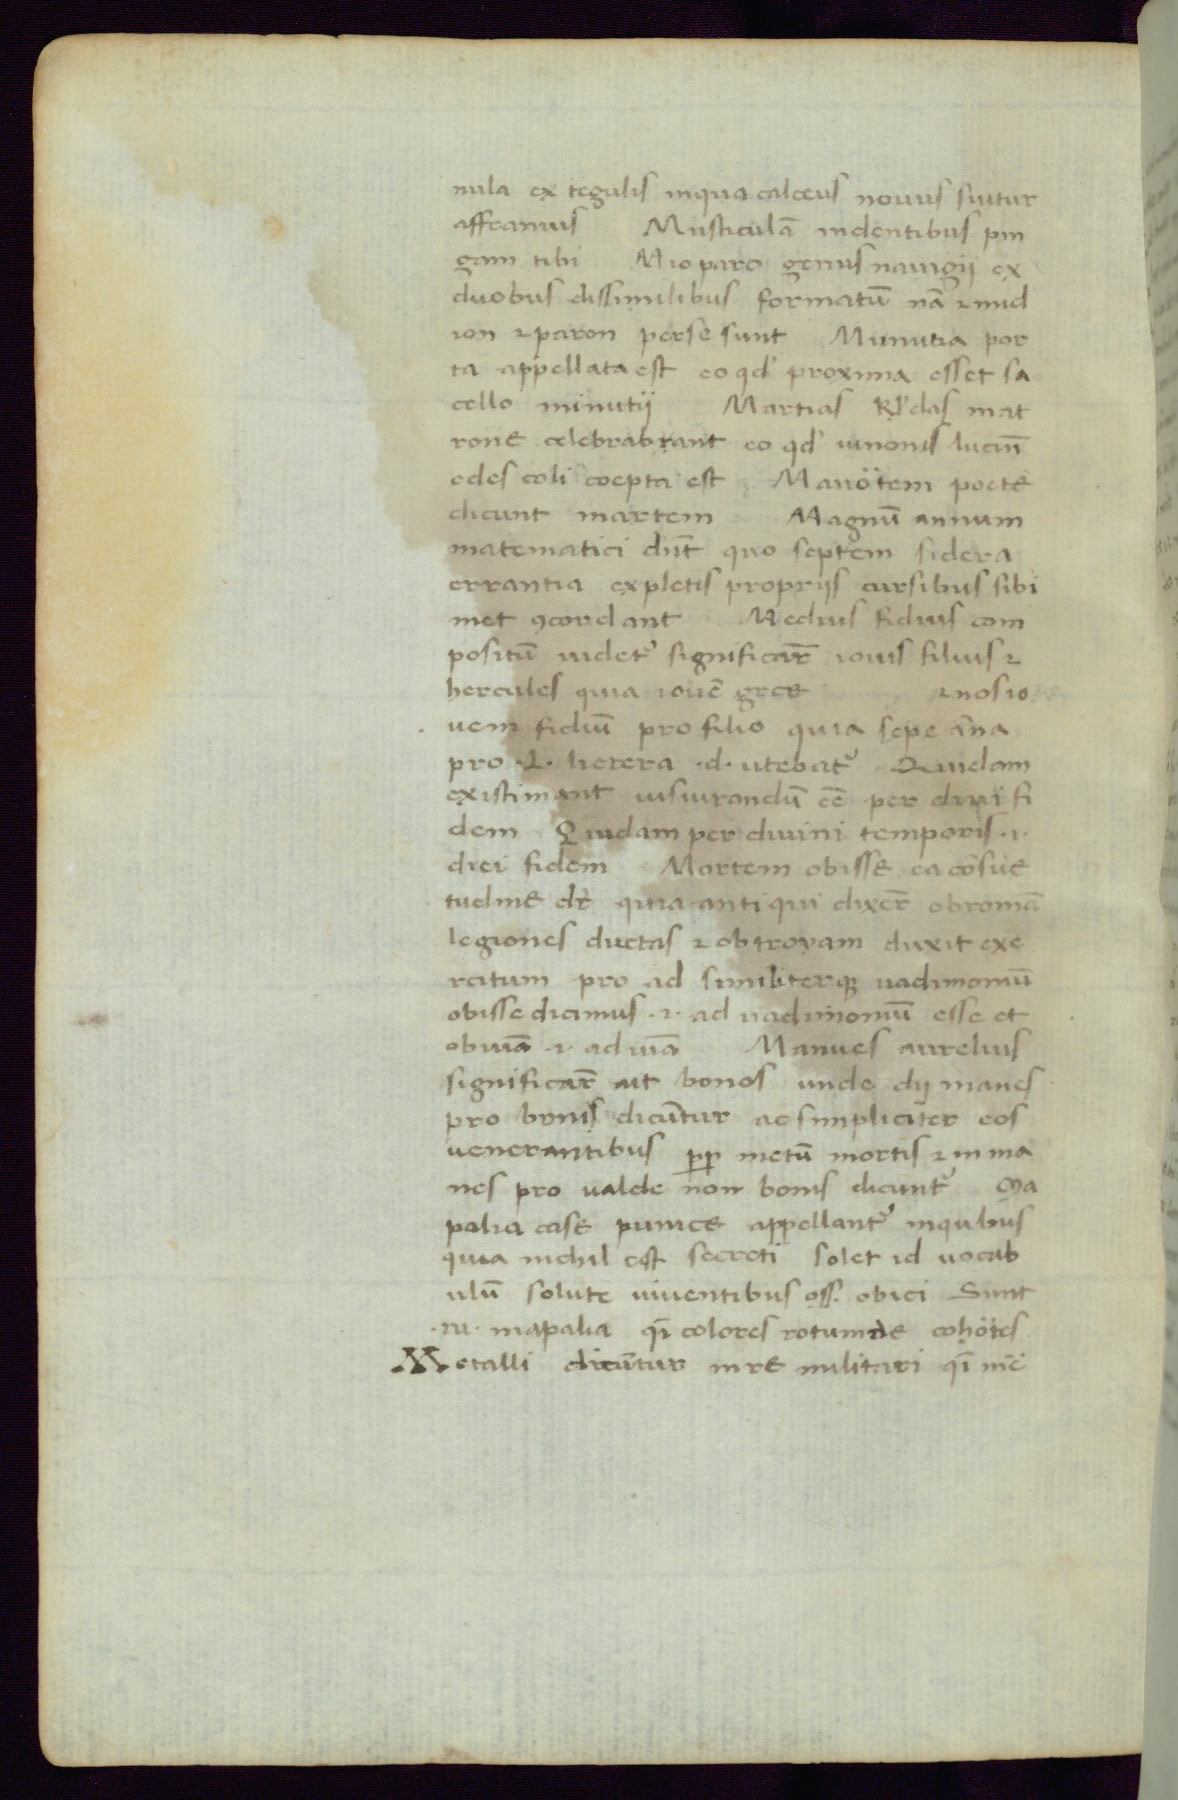 nula ex tegulis inqua calceus nouus suitur
affranius Musticulā indentibus pin
gam tibi Mioparo genus nauigij ex
duobus dissimilibus formatū nā ⁊ mid
ion ⁊ paron perse sunt Minutia por
ta appellata est eo qđ proxima esset sa
cello minutij Martias kl̓das mat
rone celebrabrant eo qđ iunonis lucin̄
edes coli coepta est Mauōtem poete
dicunt martem Magnū annum
matematici dūt quo septem sidera
errantia expletis proprijs cursibus sibi
met ꝯcordant Medius fidius com
positū uidet᷑ significar̄ iouis filius ⁊
hercules quia iouē grece ⁊ nos io
uem fidiū pro filio quia sepe āna
pro .L. lictera .d. utebat᷑ Quidam
existimant iusiurandū eē per diui fi
dem Quidam per diuini temporis .i.
diei fidem Mortem obisse ea cōsue
tudine dr̄ quia antiqui dixer̄ obromā
legiones ductas ⁊ ob troyam duxit exe
rcitum pro ad similiterqꝫ uadimoniū
obisse dicimus .i. ad uadimoniū esse et
obuiā .i. ad uiā Manues aurelius
significar̄ ait bonos unde dij manes
pro bonis dicūtur ac simpliciter eos
uenerantibus ꝓp metū mortis ⁊ in ma
nes pro ualde non bonis dicunt᷑ Ma
palia case punice appellant᷑ inquibus
quia nichil est secreti solet id uocab
ulū solute uiuentibus oss. obici Sunt
.iu. mapalia qī colores rotumde cohōtes
Metalli dicūtur inre militari qī mē